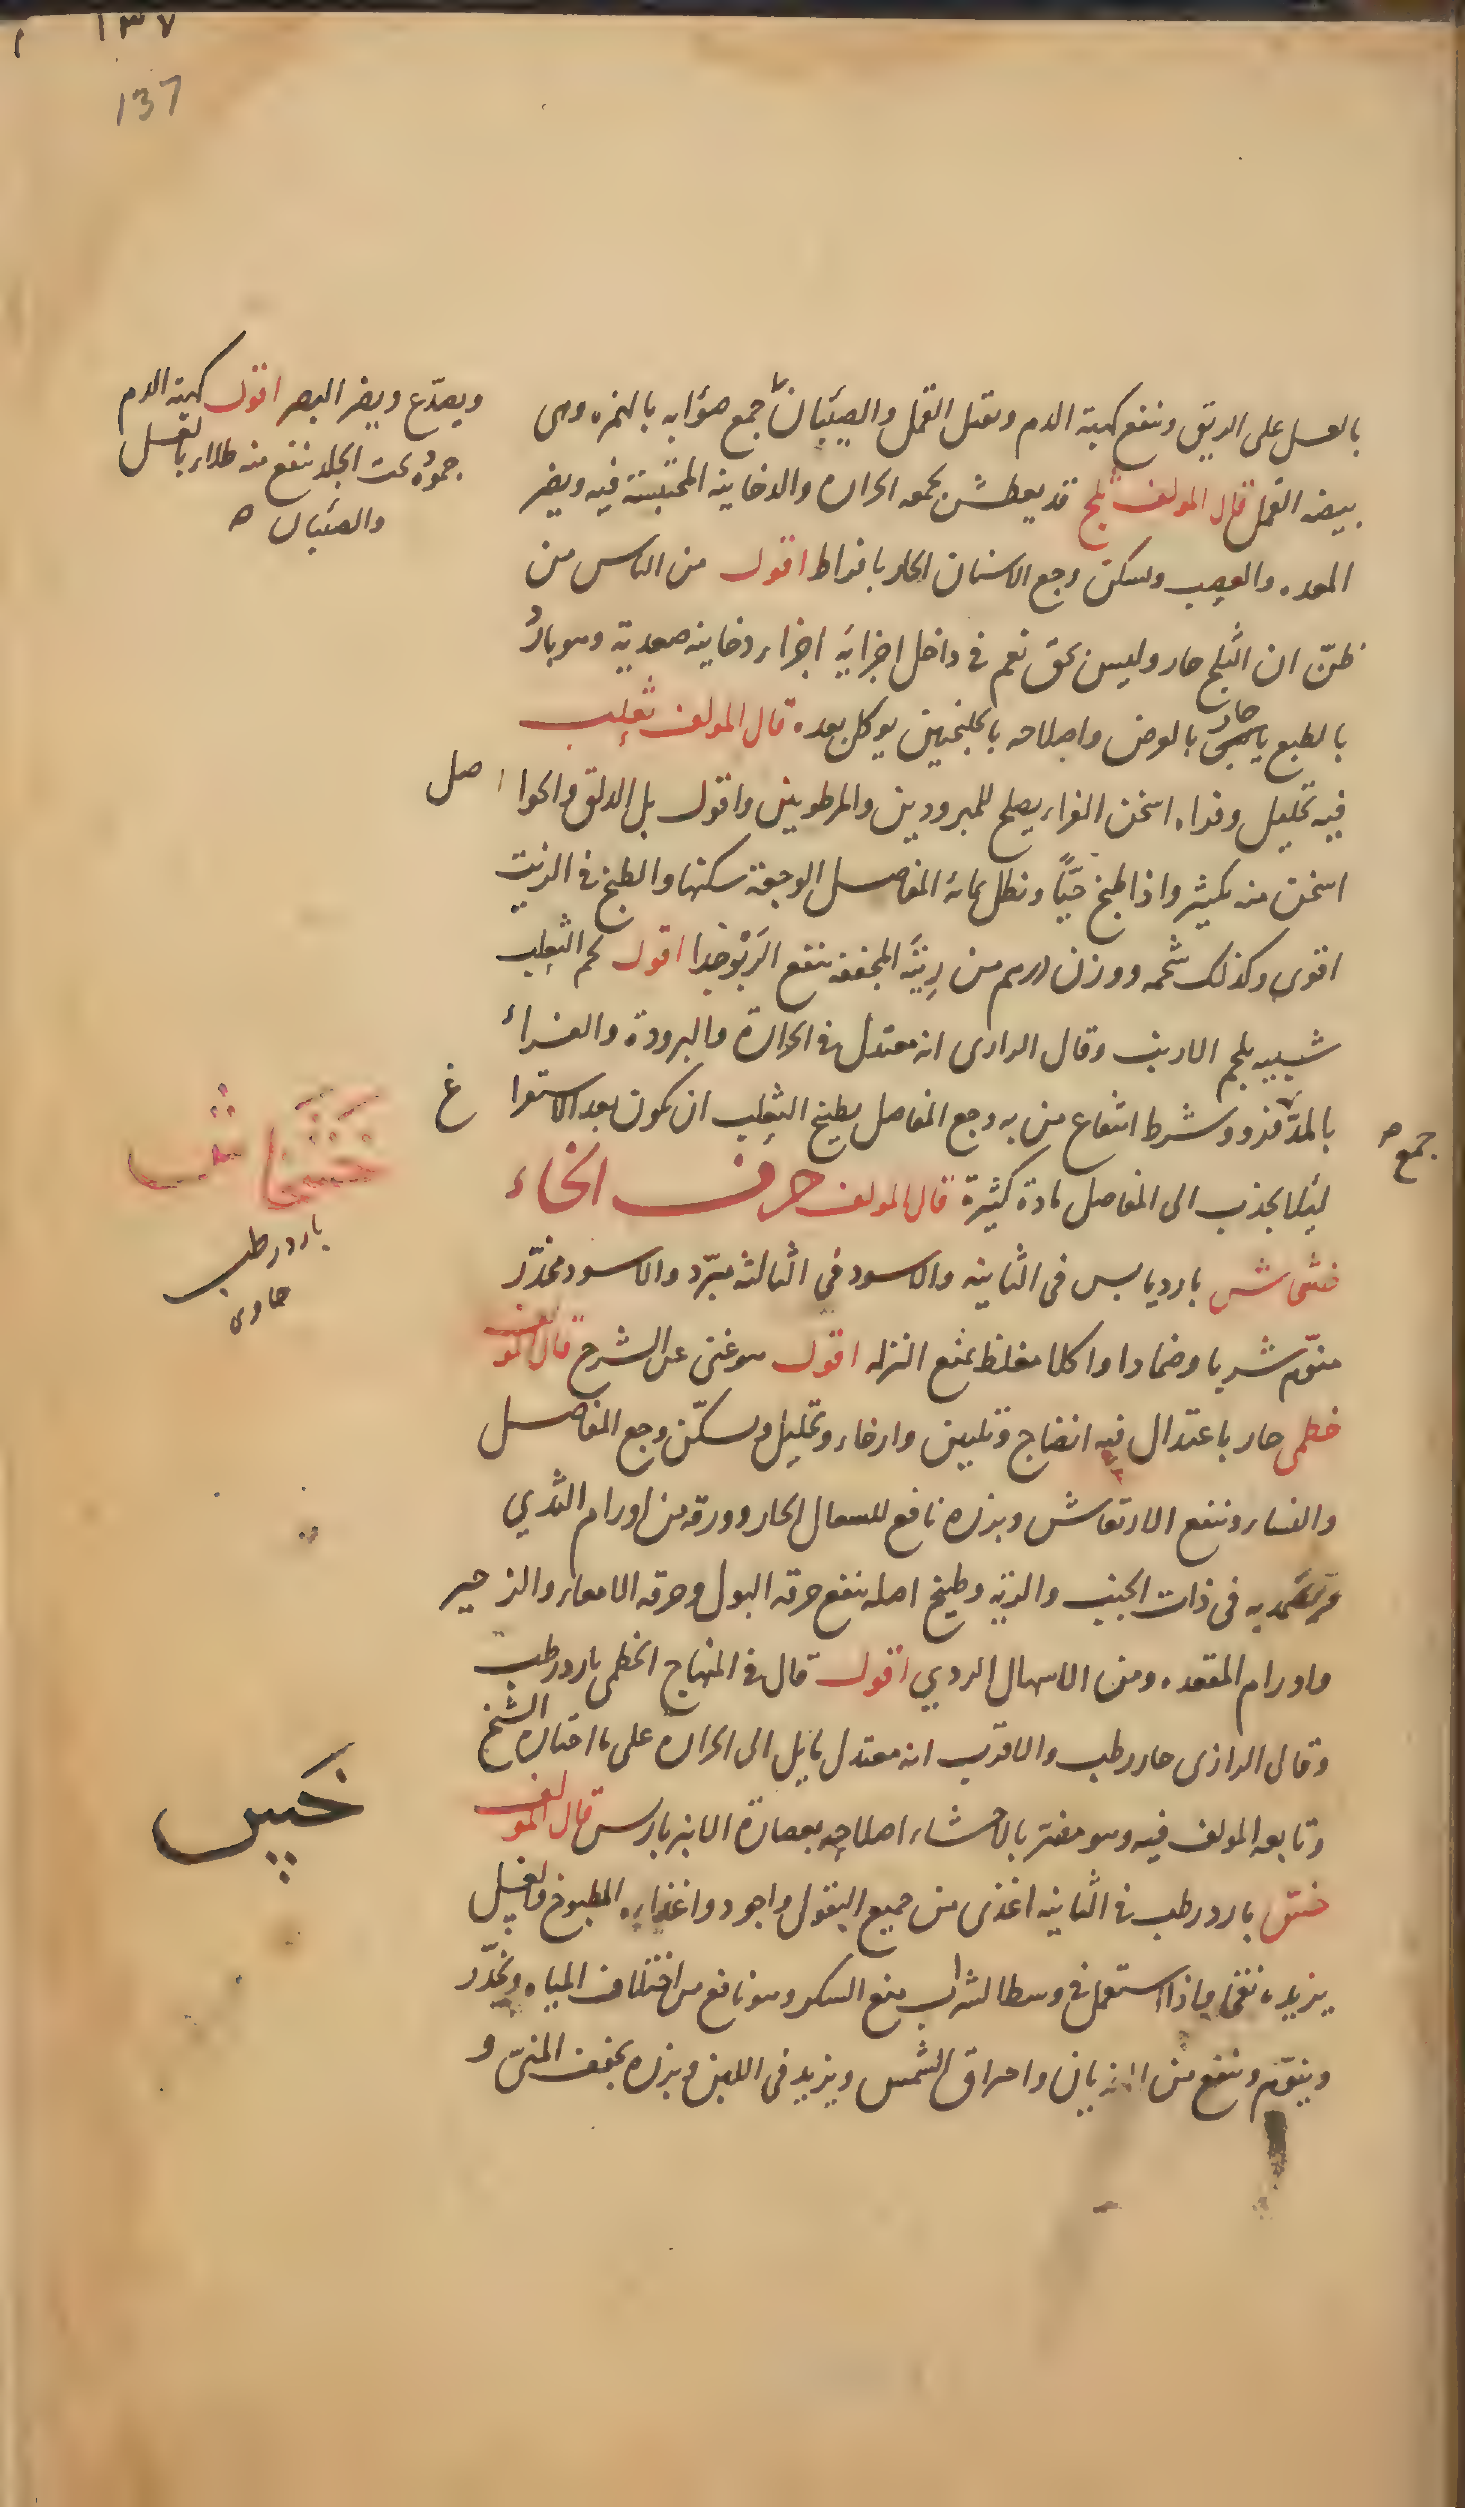 ١٣٧
137
بالعسل على الريق وينفع كهبة الدم ويقتل القمل والصئبان جمع صؤابه بالهمزه وهى
بيضه القمل قال المولف ثلج قد يعطش بجمعه الحراره والدخانيه المحتبسة فيه ويضر
المعده والعصب ويسكن وجع الاسنان الحار بافراط اقول من الناس من
ظنّ ان الثلج حار وليس بحق نعم فى داخل اجزائه اجزاء دخانيه صعدية وهو باردُ
بالطبع حار بالعرض واصلاحه بالجلنجبين يوكل بعده قال المولف ثعلب
فيه تحليل وفراه اسخن الفراء يصلح للمبرودين والمرطوبين واقول بل الدلق والحواصل
اسخن منه بكثير واذا طبخ حيًّا ونطل بمائه المفاصل الوجعة سكنها والطبخ فى الزيت
اقوى وكذلك شحمه ووزن درهم من رِيته المجففه ينفع الربو جدا اقول لحم الثعلب
شبيه بلحم الارنب وقال الرازى انه معتدل فى الحرارة والبرودة والفراء
بالمدّ فرو وشرط انتفاع من به وجع المفاصل بطبيخ الثعلب ان يكون بعد الاستفراغ
ليلا يجذب الى المفاصل مادة كثيرة قال المولف حرف الخاء
خشخاش بارد يابس فى الثانيه والاسود فى الثالثه مبرّد والاسود مخدّر
منوّم شربا وضمادا واكلا مغلظ يمنع النزله اقول هو غنى عن الشرح قال المولف
خطمى حار باعتدال فيه انضاج وتليين وارخاء وتحليل ويسكّن وجع المفاصل
والنسا وينفع الارتعاش وبزره نافع للسعال الحار وورقه من اورام الثدي
ويضمد به فى ذات الجنب والريه وطبيخ اصله ينفع حرقه البول وحرقه الامعاء والزحير
واورام المقعده ومن الاسهال الردي اقول قال فى المنهاج الخطمى بارد رطب
وقال الرازى حار رطب والاقرب انه معتدل مايل الى الحراره على ما اختاره الشيخ
وتابعه المولف فيه وهو مضر بالاحشاء اصلاحه بعصارة الانبرباريس قال المولف
خس بارد رطب فى الثانيه اغذى من جميع البقول واجود واغذاه المطبوخ والغسل
يزيده نفخا واذا استعمل فى وسط الشراب منع السكر وهو نافع من اختلاف المياه ويخدّر
وينوّم وينفع من الهذيان واحراق الشمس ويزيد فى اللبن وبزره يجفف المنىّ و
ويصدّع ويضر البصر اقول كهبة الدم
جموده تحت الجلد ينفع منه طلاء بالعسل
والصئبان
جمع
خشخاش
بارد رطب
حاوى
خس